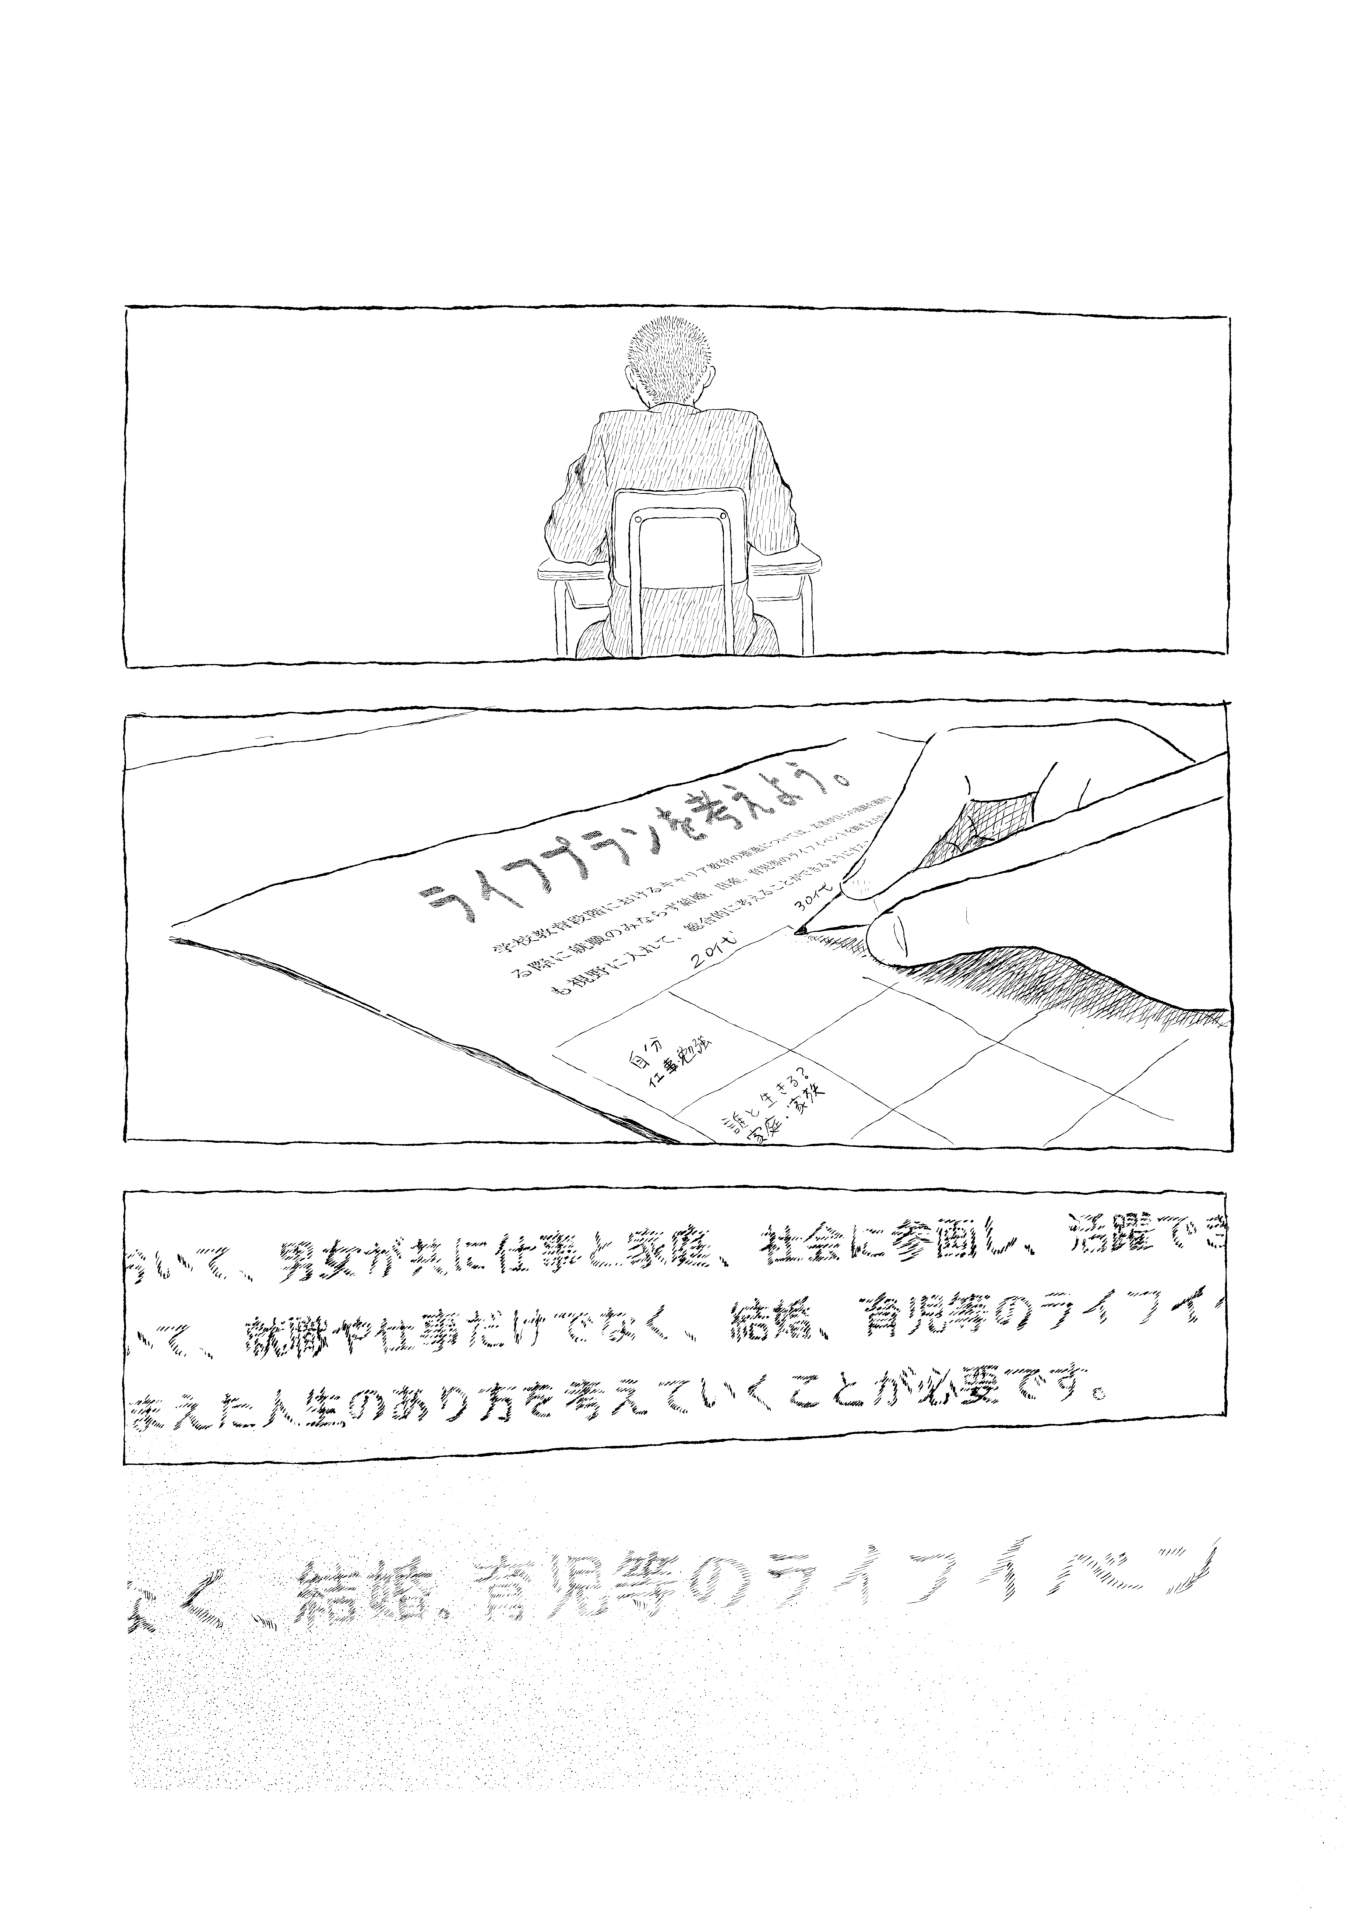 ライフプランを考えよう。
学校教育段階におけるキャリア教育の推進については、
る際に就職のみならず結婚、出産、育児等のライフイベントを踏まえ
も視野に入れて、総合的に考えることができるように
20代
30代
自分
仕事勉強
誰と生きる?
家庭・家族
おいて、男女が共に仕事と家庭、社会に参画し、活躍でき
いて、就職や仕事だけでなく、結婚、育児等のライフイ
まえた人生のあり方を考えていくことが必要です。
なく、結婚、育児等のライフイベン